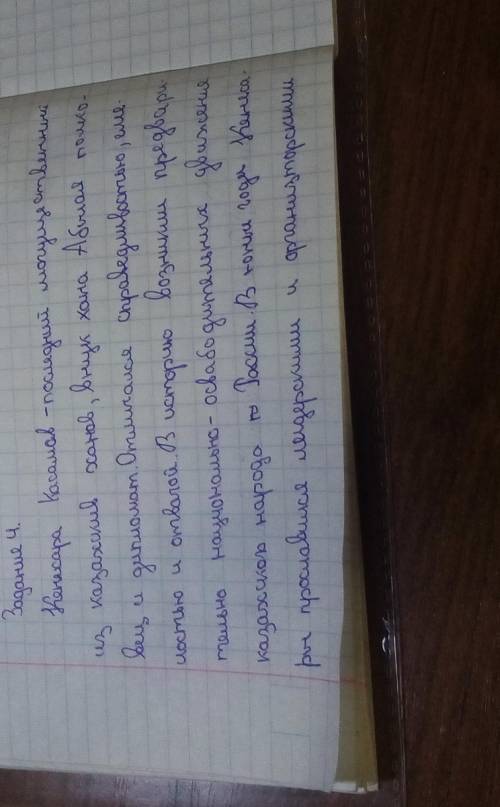 Задание 4.
Кенесара Касымов - последний могущественный
из казахских ханов, внук хана Абылая полко-
вец и дипломат. Отличался справедливостью, сме-
лостью и отвагой. В историю возникши предвари
тельно национально-освабодительных движение
казахского народа России. В юные годы Кенеса-
ры прославился лидерскими и организаторскими